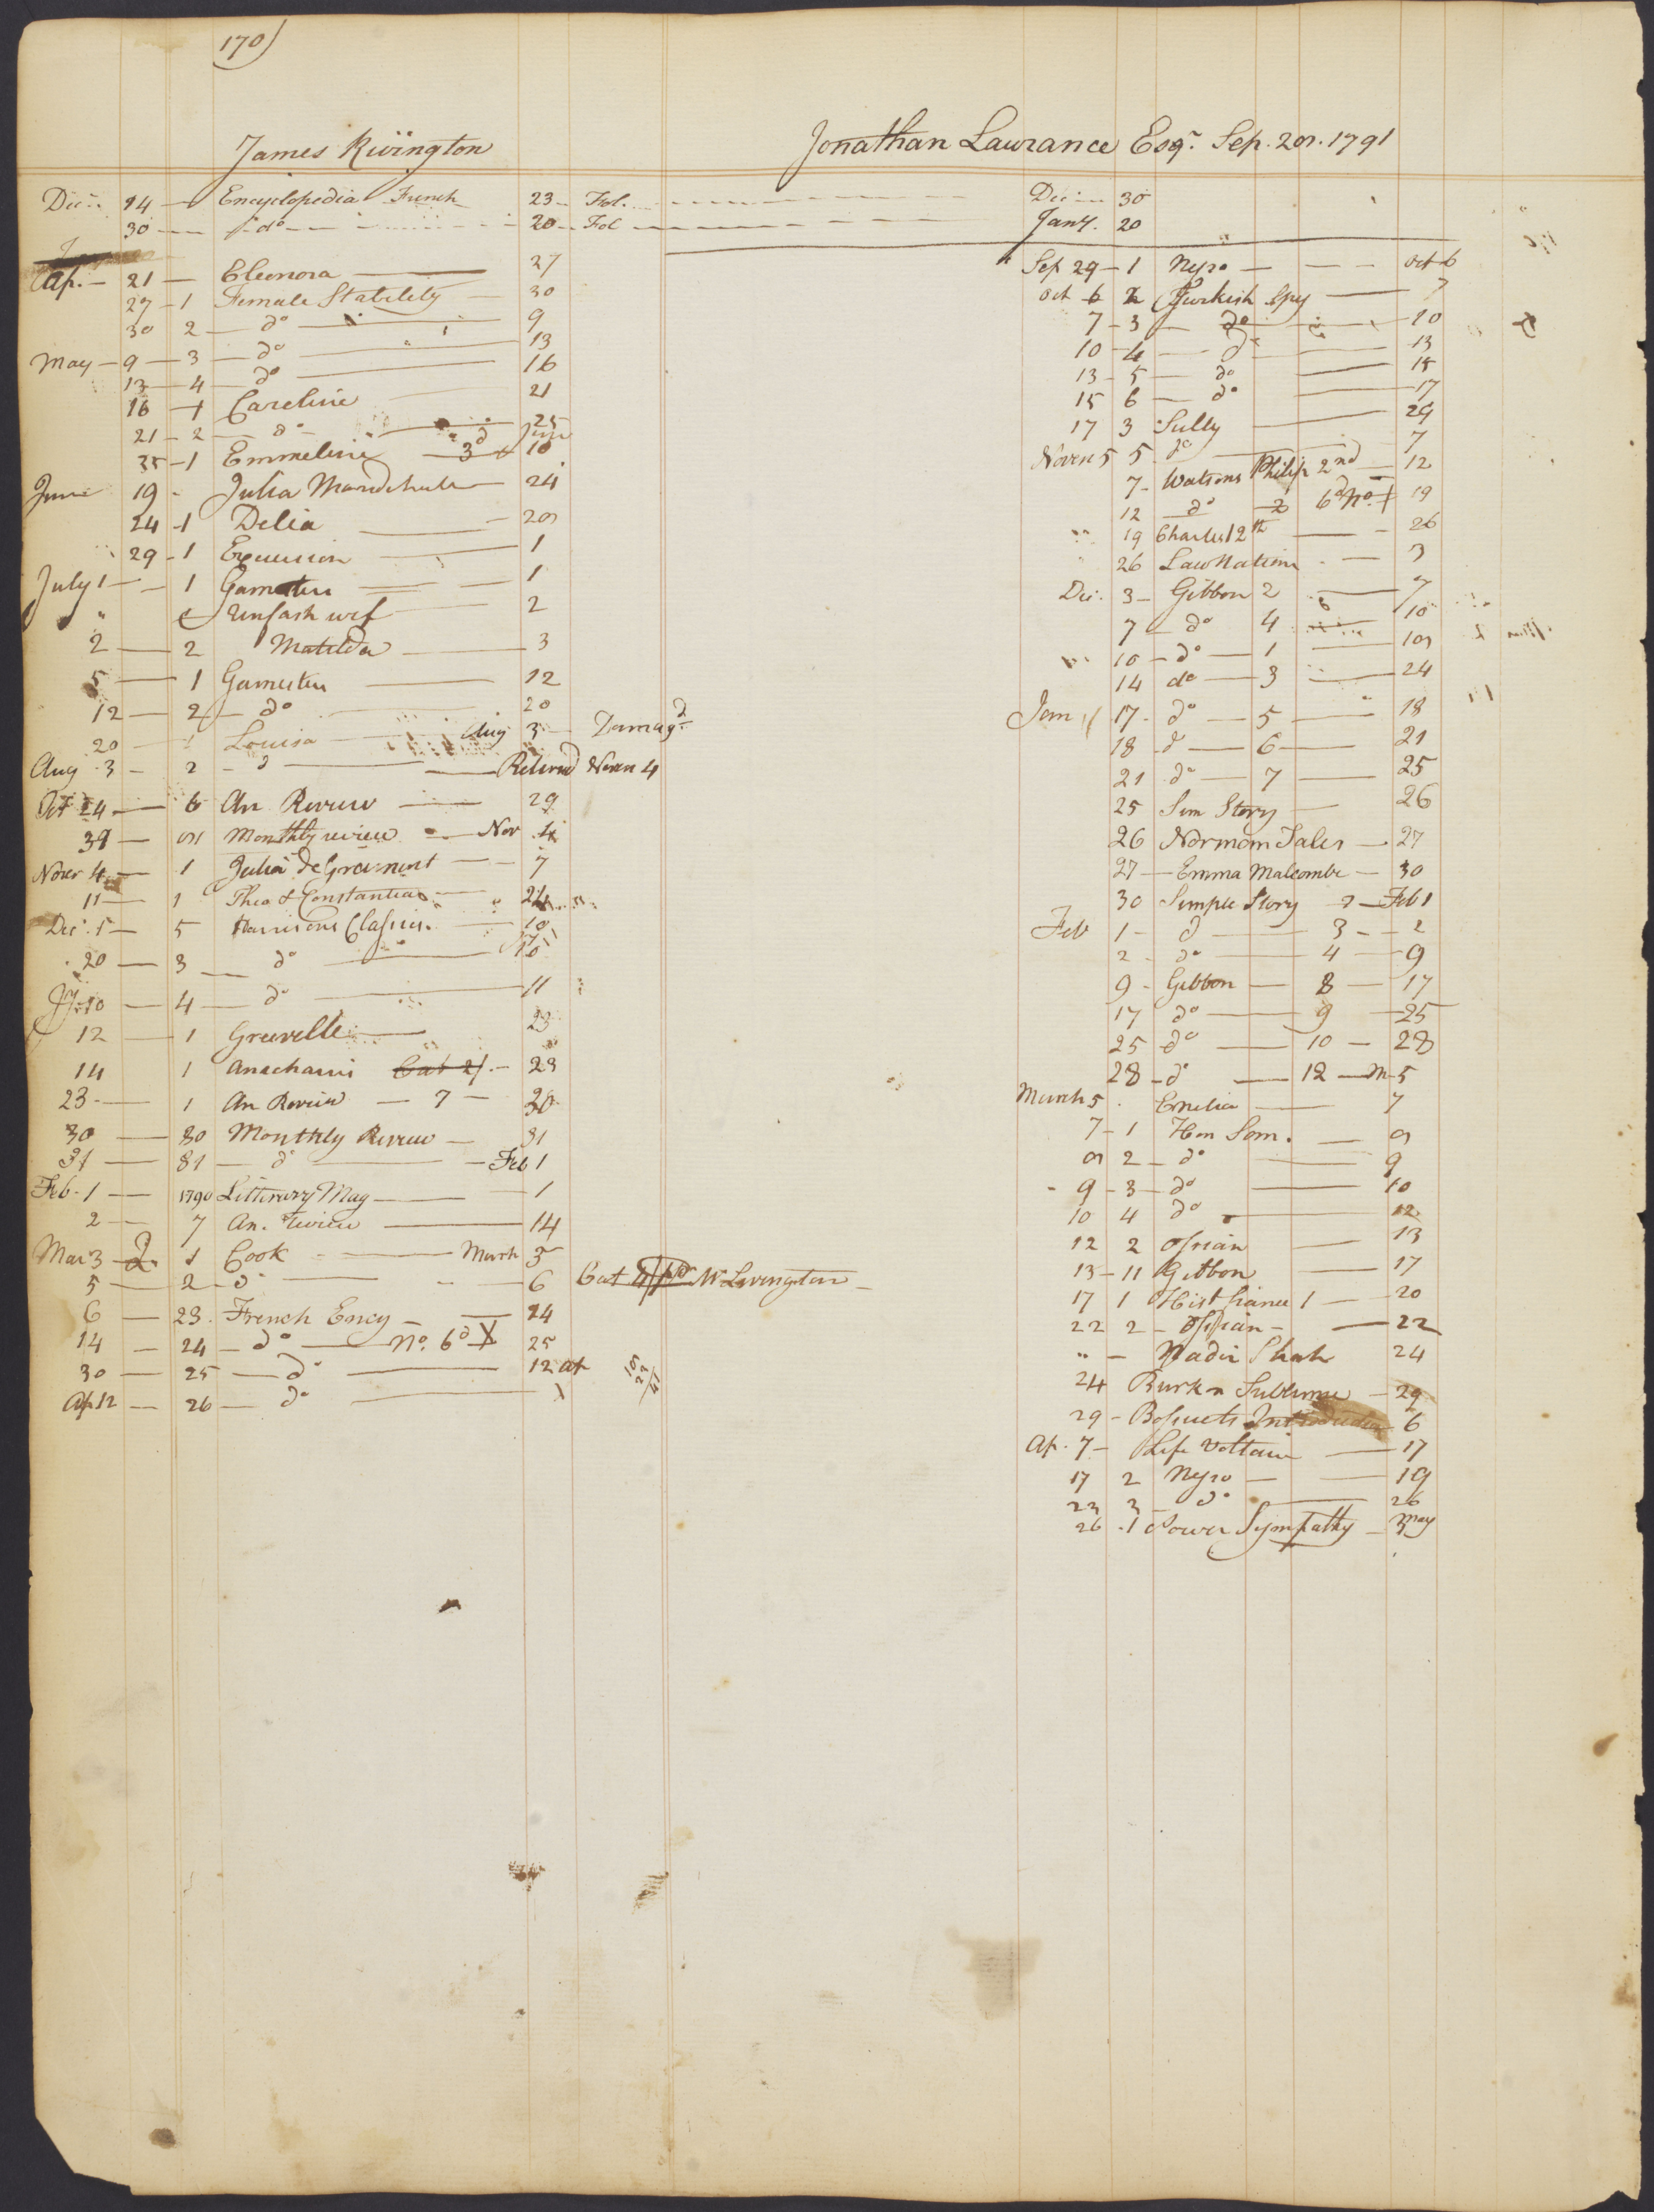 170)
James Rivington
Dec: 14 — Encyclopedia French 23 — Fol.
30 — do — 20 — Fol — Dec — 30
Jany. 20
Ap. — 21 — Eleonora — 27
27 — 1 Female Stability — 30
30 2 — do — 9
May — 9 — 3 — do — 13
13 — 4 — do — 16
16 — 1 Careline — 21
21 — 2 — do — 25
25 — 1 Emmeline — 3d June 10
June 19 - Julia — 24
24 - 1 Delia — 29
29 - 1 Excursion — 1
July 1 — 1 Gamesters — 1
" Unfash wif — 2
2 — 2 Matilda — 3
5 — 1 Gamesters — 12
12 — 2 — do 20
20 — 1 Louisa — Aug 3 — Damagd
Aug 3 — 2 - d — Returnd Novem 4
Oct 24 — 6 An Review — 29
Monthly review — Nov 4
Novr 4 — 1 Julia De Gramont — 7
11 — 1 Theo & Constantia — 24
Dec. 5 — 5 Harrisons Classics. — 10
20 — 3 — do —
10 — 4 — do — 11
12 — 1 Greville — 23
14 1 Anacharsis Cat 2/. — 23
23 — 1 An Review — 7 — 30
30 — 80 Monthly Review — 31
31 — 81 — d — Feb 1
Feb. 1 — 1790 Litterary Mag — 1
2 — 7 An. review — 14
Mar 3 — 1 Cook — March 5
5 — 2 - d — 6 Cat Mr Livington
6 — 23. French Ency — 14
14 — 24 — do — No. 6d X 25
30 — 25 — do — 12 ap
Ap 12 — 26 — do —
Jonathan Lawrance Esqr. Sep. 29. 1791
Sep 29 — 1 Nejro — Oct 6
Oct 6 2 Turkish Spy — 7
7 - 3 — do — 10
10 - 4 — do 13
13 - 5 — do — 15
15 6 — do — 17
17 3 Sully — 29
Novem 5 5 do — 7
7 - Watsons Philip 2nd — 12
12 — do — 2 6d No. 19
19 Charles 12th — 26
26 Law Nations — 3
Dec. 3 — Gibbon 2 — 7
7 — do 4 — 10
10 — do — 1 —
14 do — 3 — 24
Jan 17 - do — 5 — 18
18 d — 6 — 21
21 do — 7 — 25
25 Sim Story — 26
26 Norman Tales — 27
27 — Emma Malcombe — 30
30 Simple Story 2 — Feb 1
Feb 1 - d — 3 — 2
2 - do — 4 — 9
9 - Gibbon — 8 — 17
17 do — 9 — 25
25 do — 10 — 28
28 - do — 12 — M 5
March 5 Emelia — 7
7 - 1 Hon Som. — 9
9 2 - do — 9
9 - 3 - do — 10
10 4 do — 12
12 2 Ossian — 13
13 - 11 Gibbon — 17
17 1 Hist france 1 — 20
22 2 - Ossian — 22
" - Nadir Shah 24
24 Burk n Sublime — 29
29 - Bossuets Introduction 6
Ap. 7 - Life Voltaire — 17
17 2 Nejro — 19
23 3 — do — 26
26 . 1 Power Sympathy — 3 May